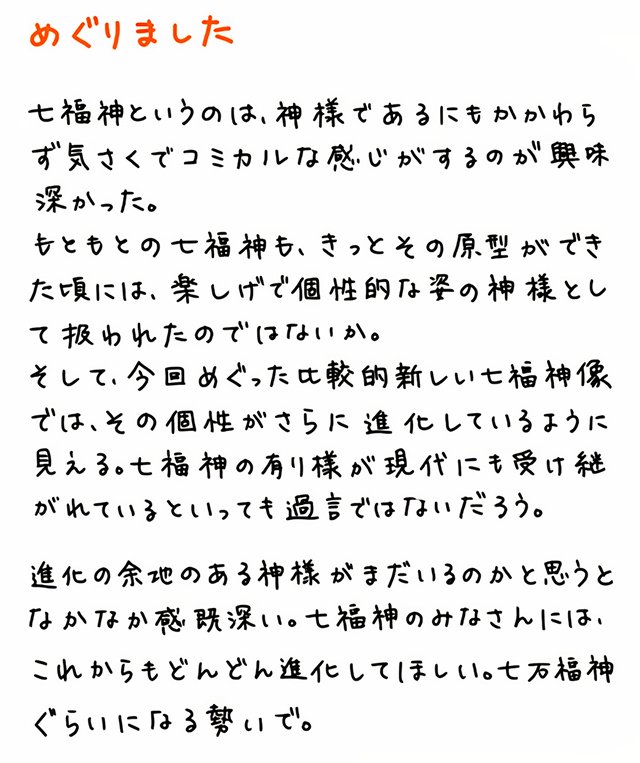 めぐりました
七福神というのは、神様であるにもかかわら
ず気さくでコミカルな感じがするのが興味
深かった。
もともとの七福神も、きっとその原型ができ
た頃には、楽しげで個性的な姿の神様とし
て扱われたのではないか。
そして、今回めぐった比較的新しい七福神像
では、その個性がさらに進化しているように
見える。七福神の有り様が現代にも受け継
がれているといっても過言ではないだろう。
進化の余地のある神様がまだいるのかと思うと
なかなか感既深い。七福神のみなさんには、
これからもどんどん進化してほしい。七万福神
ぐらいになる勢いで。